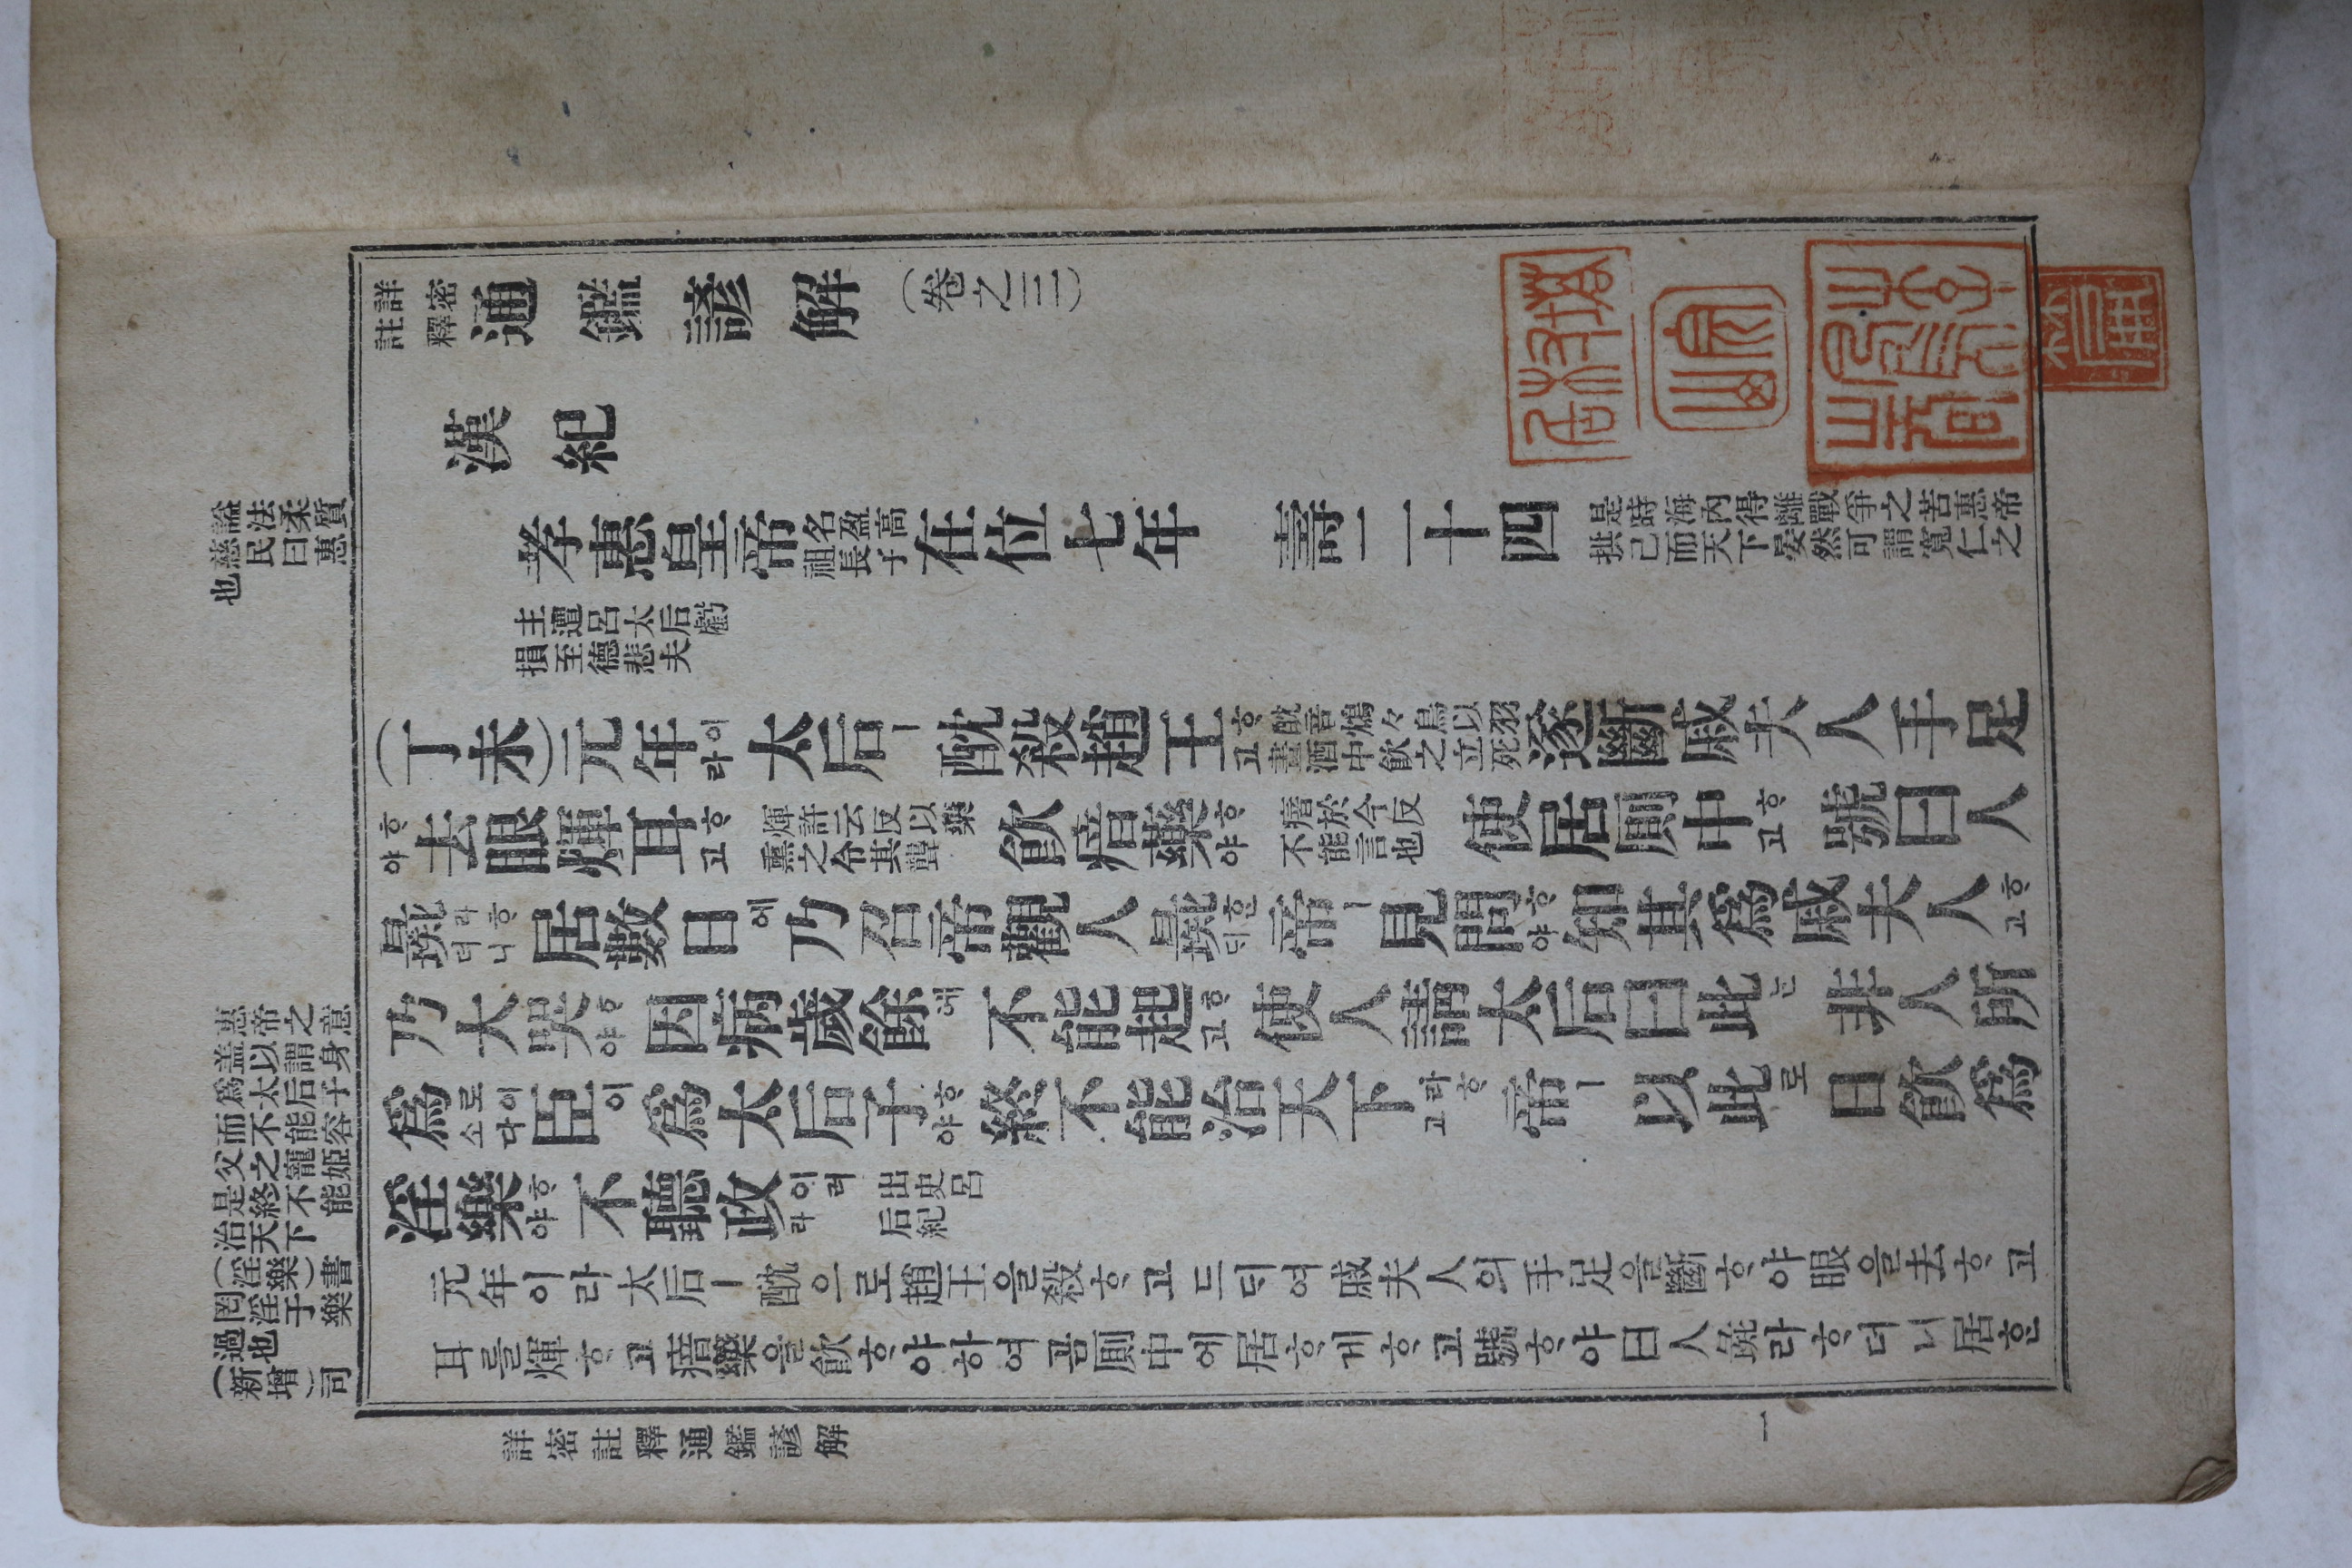 詳密註釋通鑑諺解(卷之三)
漢紀
孝惠皇帝名盈高祖長子在位七年 壽二十四是時海內得離戰爭之苦惠帝拱己而天下晏然可謂寬仁之
主遭呂太后虧損至德悲夫
(丁未)元年이라太后ㅣ酖殺趙王ᄒᆞ고酖音鴆々鳥以羽畫酒中飮之立死逐斷戚夫人手足
ᄒᆞ야去眼煇耳ᄒᆞ고煇許云反以藥熏之令其聾飮瘖藥ᄒᆞ야瘖於今反不能言也使居厠中ᄒᆞ고號曰人
彘라ᄒᆞ더니居數日에乃召帝觀人彘ᄒᆞᆫᄃᆡ帝ㅣ見問ᄒᆞ야知其爲戚夫人ᄒᆞ고
乃大哭ᄒᆞ야因病歲餘에不能起ᄒᆞ고使人請太后曰此ᄂᆞᆫ非人所
爲로소이다臣이爲太后子ᄒᆞ야終不能治天下라ᄒᆞ고帝ㅣ以此로日飮爲
淫樂ᄒᆞ야不聽政이러라出史呂后紀
元年이라太后ㅣ酖으로趙王을殺ᄒᆞ고드ᄃᆡ여戚夫人의手足을斷ᄒᆞ야眼을去ᄒᆞ고
耳를煇ᄒᆞ고瘖藥을飮ᄒᆞ야하여곰厠中에居ᄒᆞ게ᄒᆞ고號ᄒᆞ야曰人彘라ᄒᆞ더니居ᄒᆞᆫ
諡法柔質
慈民曰惠
也
惠帝之意
盖以謂身
爲太后子
而不能容
父之寵姬
是終不能
治天下
(淫樂)書
罔淫于樂
過也
(新增)司
詳密註釋通鑑諺解
一